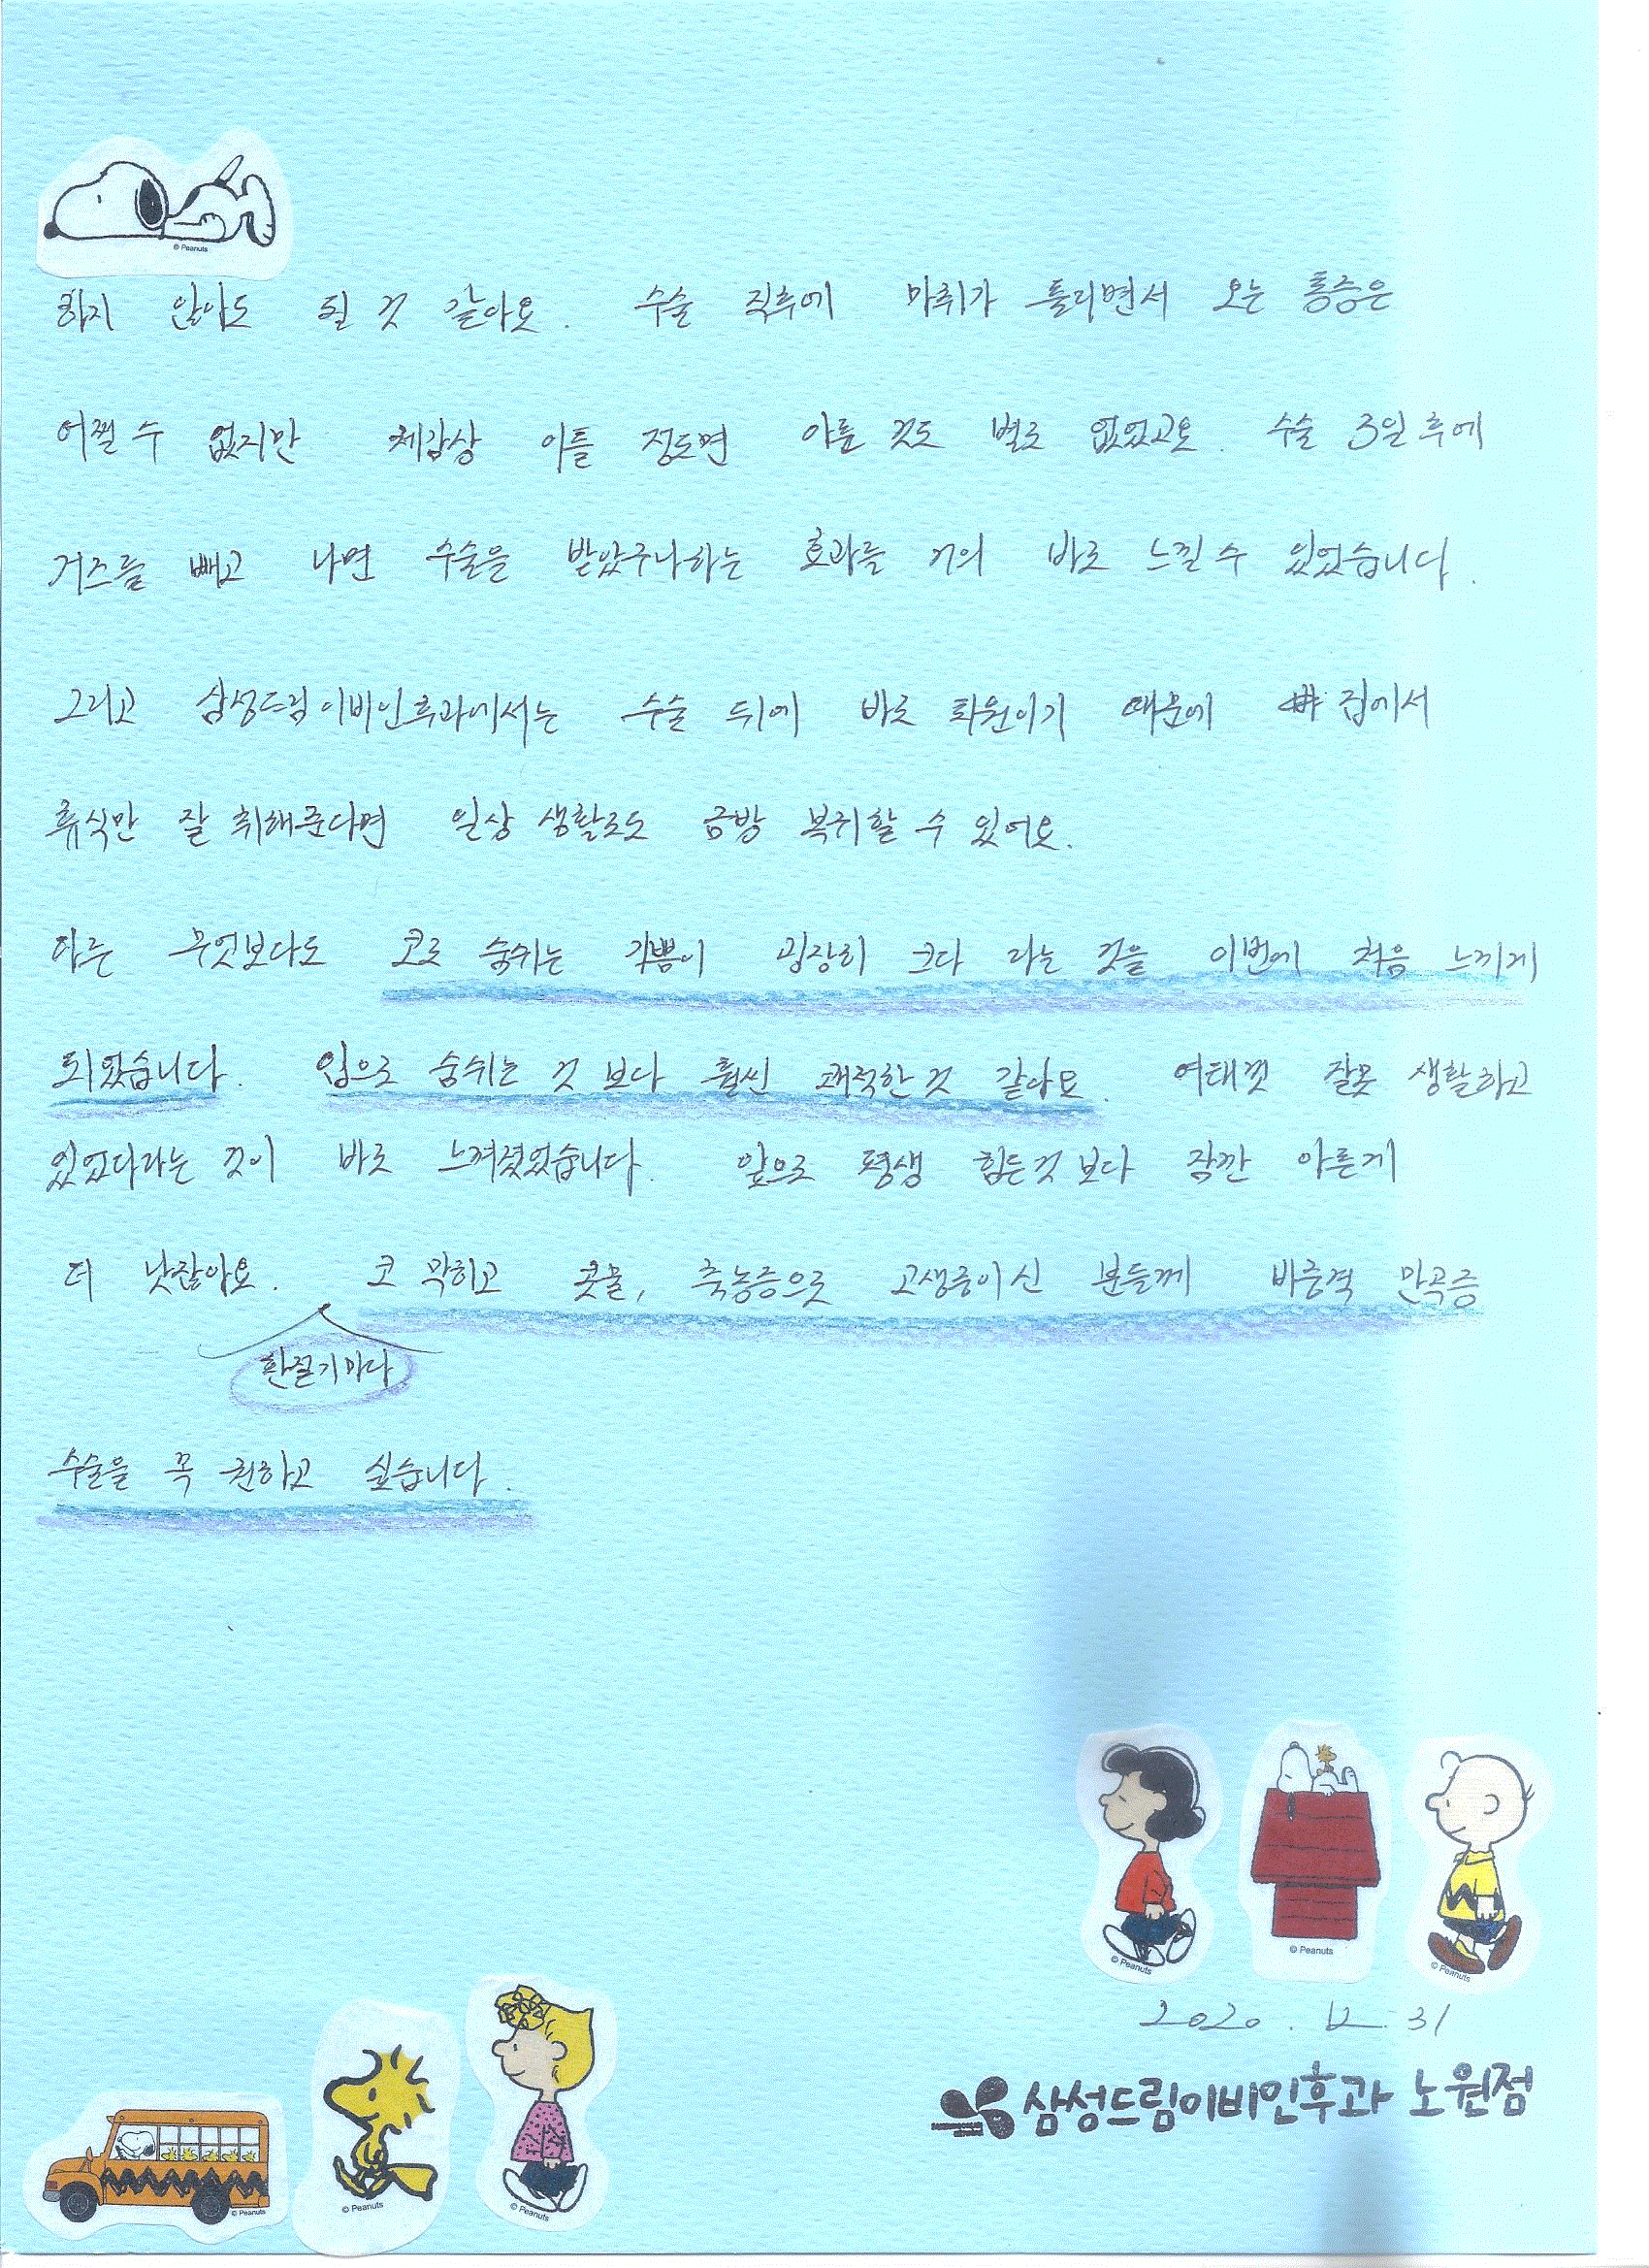 © Peanuts
하지 않아도 될 것 같아요. 수술 직후에 마취가 풀리면서 오는 통증은
어쩔 수 없지만 체감상 이틀 정도면 아픈 것도 별로 없었고요. 수술 3일 후에
거즈를 빼고 나면 수술을 받았구나하는 효과를 거의 바로 느낄 수 있었습니다.
그리고 삼성드림이비인후과에서는 수술 뒤에 바로 퇴원이기 때문에 집에서
휴식만 잘 취해준다면 일상 생활로도 금방 복귀할 수 있어요.
다른 무엇보다도 코로 숨쉬는 기쁨이 굉장히 크다 라는 것을 이번에 처음 느끼게
되었습니다. 입으로 숨쉬는 것 보다 훨씬 쾌적한 것 같아요. 여태껏 잘못 생활하고
있었다라는 것이 바로 느껴졌었습니다. 앞으로 평생 힘든것 보다 잠깐 아픈게
더 낫잖아요. 코 막히고 콧물, 축농증으로 고생중이신 분들께 비중격 만곡증
환절기마다
수술을 꼭 권하고 싶습니다.
© Peanuts
© Peanuts
© Peanuts
2020. 12. 31
삼성드림이비인후과 노원점
© Peanuts
© Peanuts
© Peanuts